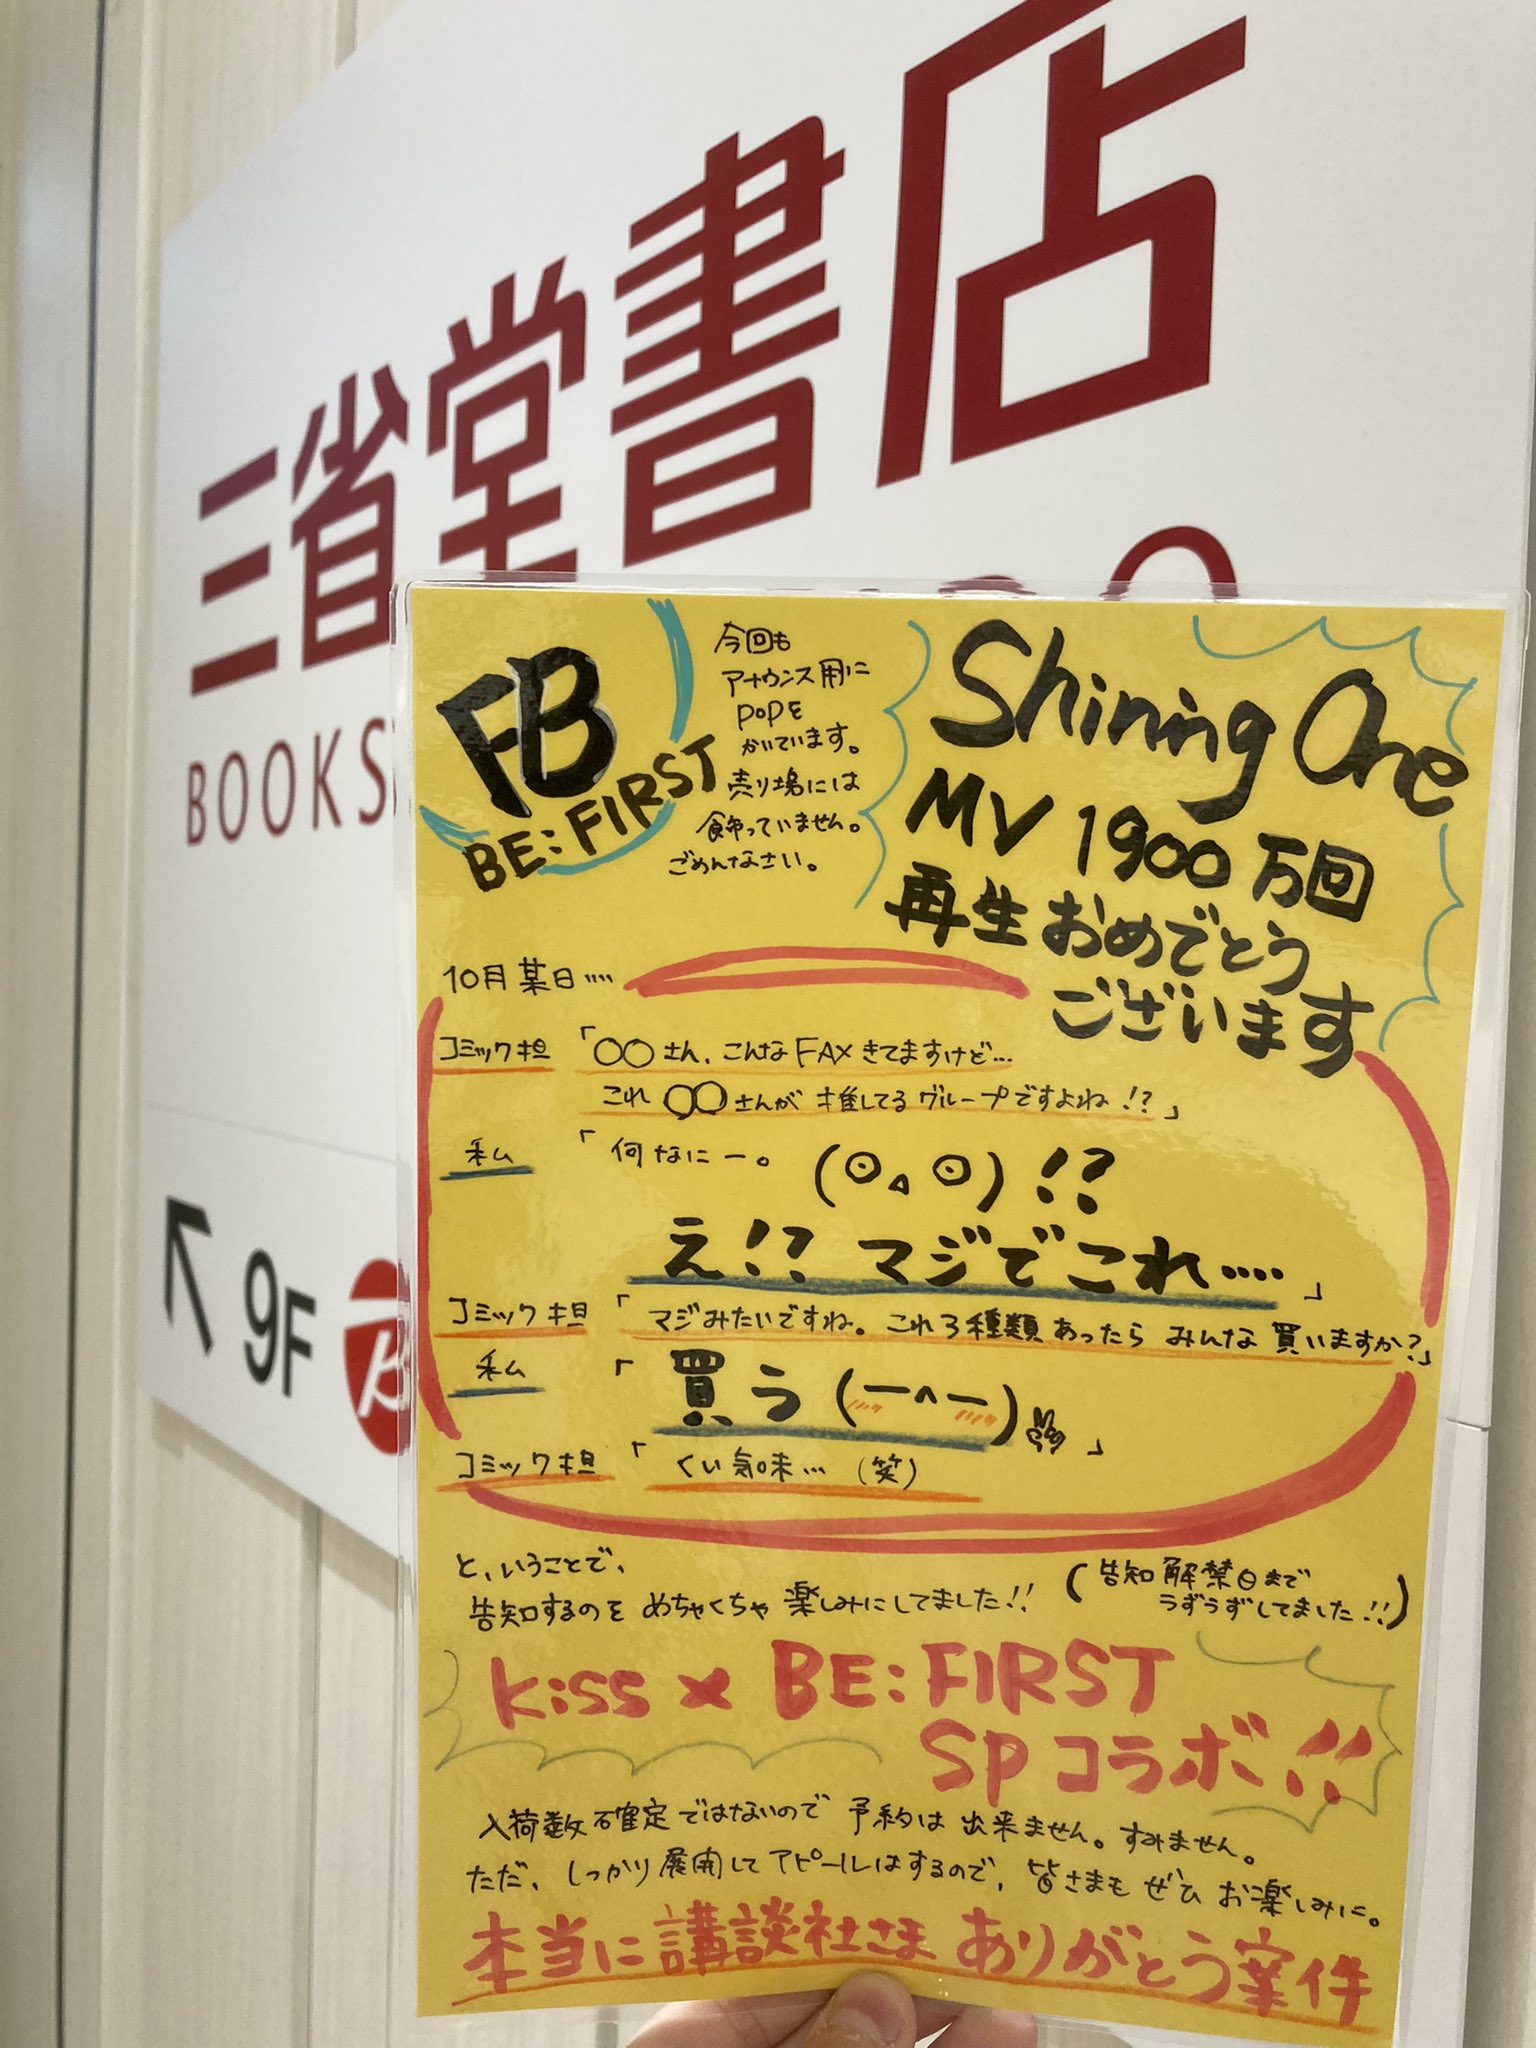 三省堂書店
BOOKS
9F
FB
BE:FIRST
今回も
アナウンス用に
POPを
かいています。
売り場には
飾っていません。
ごめんなさい。
Shining One
MV 1900万回
再生おめでとう
ございます
10月某日····
コミック担 「○○さん、こんなFAXきてますけど…
これ○○さんが推してるグループですよね!?」
私 「何なにー。(⊙▵⊙)!?
え!? マジでこれ····」
コミック担 「マジみたいですね。これ3種類あったらみんな買いますか?」
私 「買う(一^一)✌」
コミック担 「くい気味…(笑)
と、いうことで、
告知するのをめちゃくちゃ楽しみにしてました!!
(告知解禁日まで
うずうずしてました!!)
Kiss × BE:FIRST
SPコラボ!!
入荷数確定ではないので予約は出来ません。すみません。
ただ、しっかり展開してアピールはするので、皆さまもぜひお楽しみに。
本当に講談社さまありがとう案件